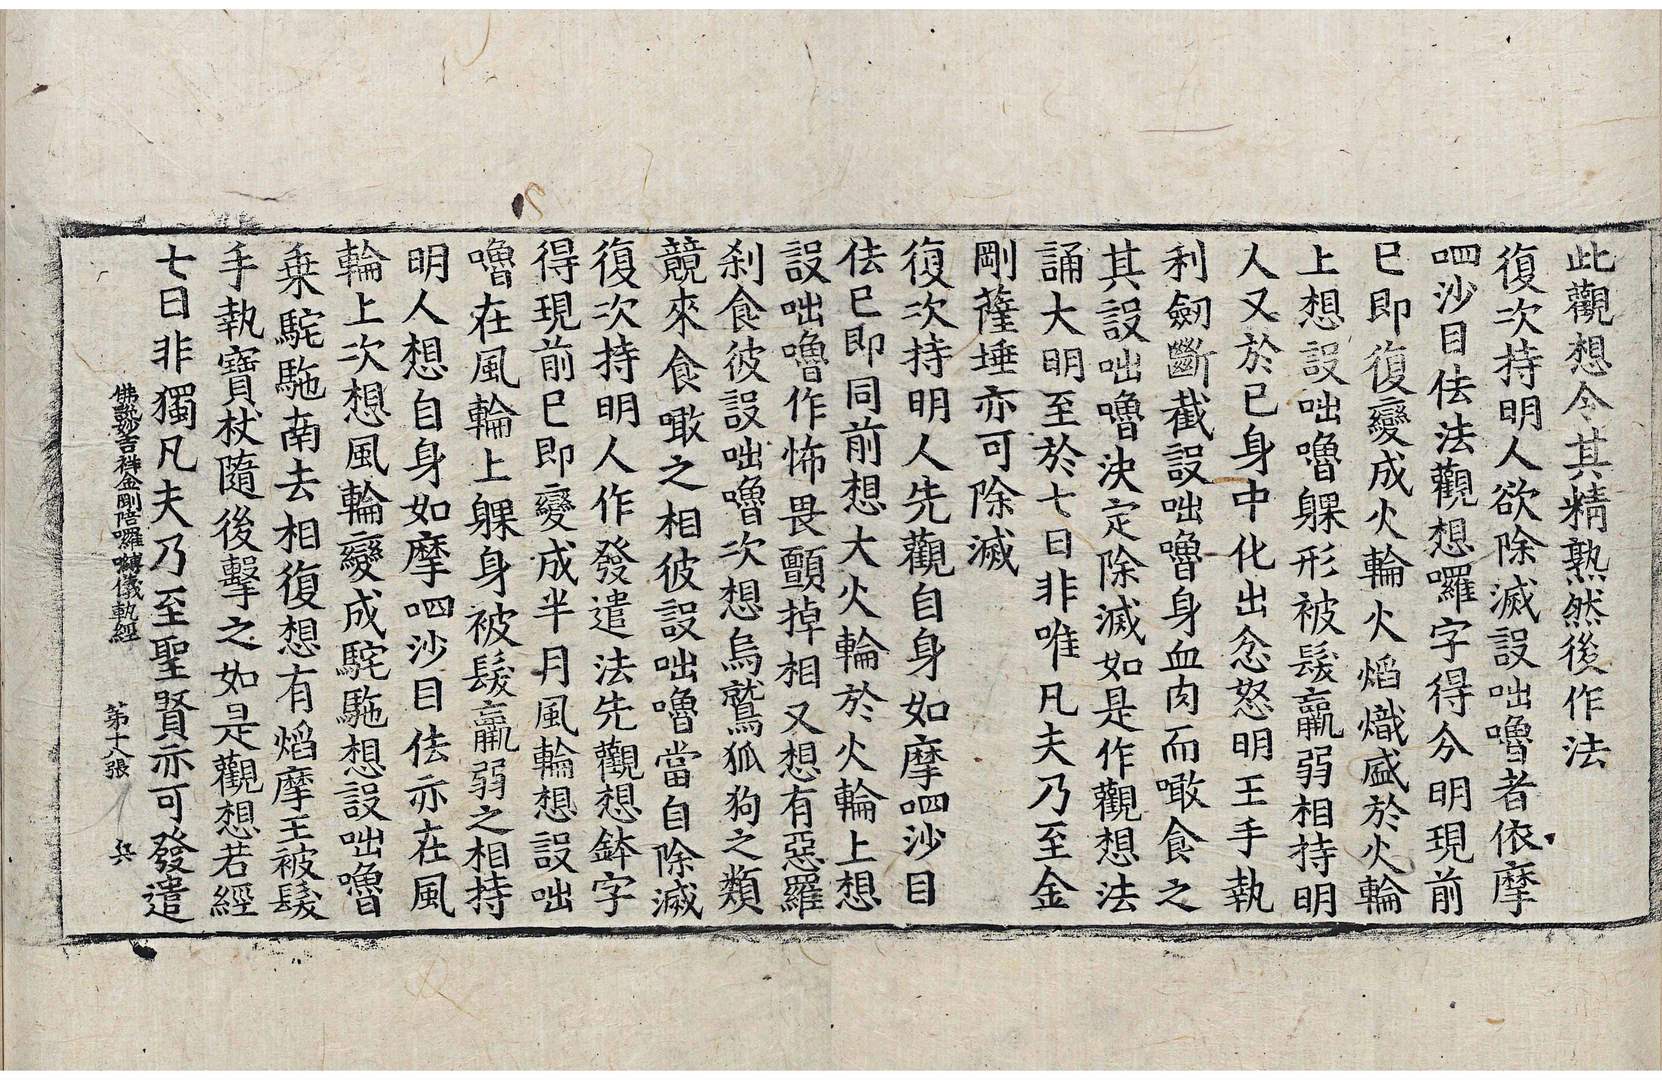 此觀想令其精熟然後作法
復次持明人欲除滅設咄嚕者依摩
呬沙目佉法觀想囉字得分明現前
已即復變成火輪火焰熾盛於火輪
上想設咄嚕躶形被髮羸弱相持明
人又於已身中化出忿怒明王手執
利劒斷截設咄嚕身血肉而噉食之
其設咄嚕決定除滅如是作觀想法
誦大明至於七日非唯凡夫乃至金
剛薩埵亦可除滅
復次持明人先觀自身如摩呬沙目
佉已即同前想大火輪於火輪上想
設咄嚕作怖畏顫掉相又想有惡羅
刹食彼設咄嚕次想烏鷲狐狗之類
競來食噉之相彼設咄嚕當自除滅
復次持明人作發遣法先觀想鉢字
得現前已即變成半月風輪想設咄
嚕在風輪上躶身被髮羸弱之相持
明人想自身如摩呬沙目佉亦在風
輪上次想風輪變成駝駞想設咄嚕
乗駝駞南去相復想有焰摩王被髮
手執寶杖隨後擊之如是觀想若經
七日非獨凡夫乃至聖賢亦可發遣
佛說妙吉祥金剛陪囉嚩儀軌經 第十八張 兵